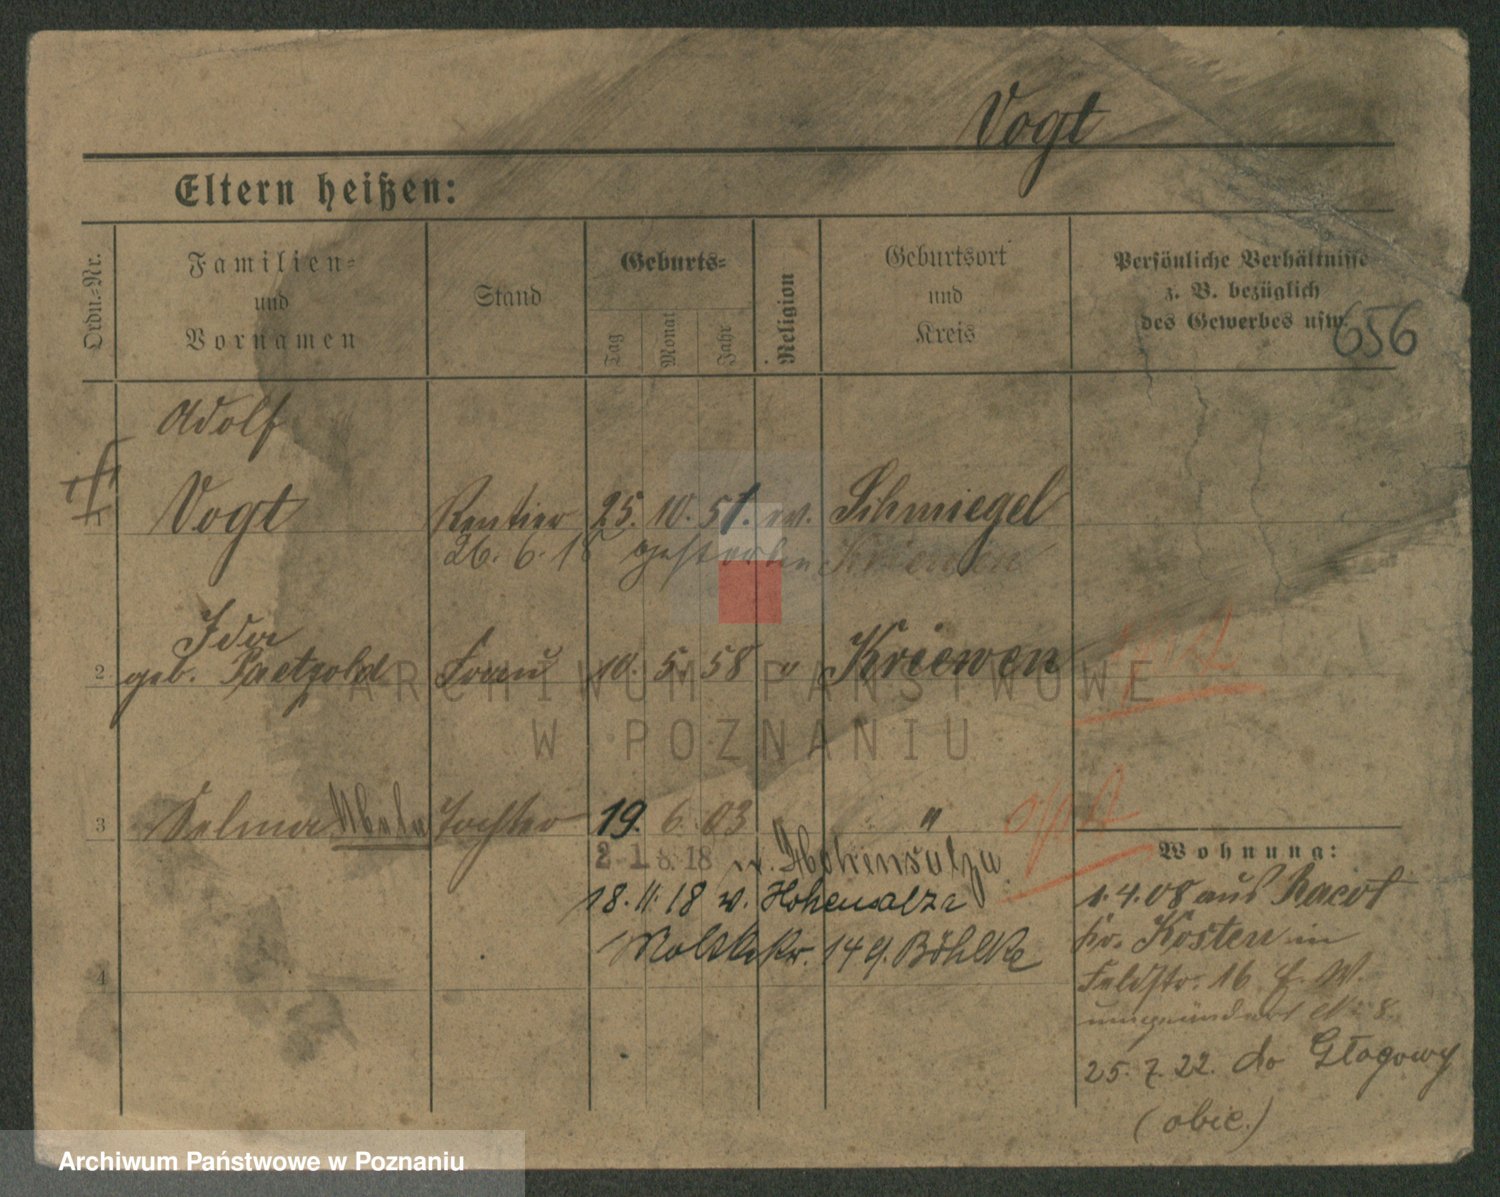 Vogt
Eltern heißen:
Ordn.-Nr.
Familien-
und
Vornamen
Stand
Geburts-
Tag
Monat
Jahr
Religion
Geburtsort
und
Kreis
Persönliche Verhältnisse
z. B. bezüglich
des Gewerbes usw.
656
Adolf
1 Vogt Rentier 25. 10. 51. ev. Schmiegel
26. 6. 18 gestorben Kriewen
Ida
2 geb. Paetzold Frau 10. 5. 58 " Kriewen
3 Selma Tochter 19. 6. 03 "
2 1 8. 18 n. Hohensalza
18. 11. 18 v. Hohensalza
14 q. Böhlke
4
Wohnung:
1. 4. 08 aus Racot
Kr. Kosten in
Feldstr. 16 E. W.
25. 7. 22. do Głogowy
(obie.)
ARCHIWUM PAŃSTWOWE
W POZNANIU
Archiwum Państwowe w Poznaniu